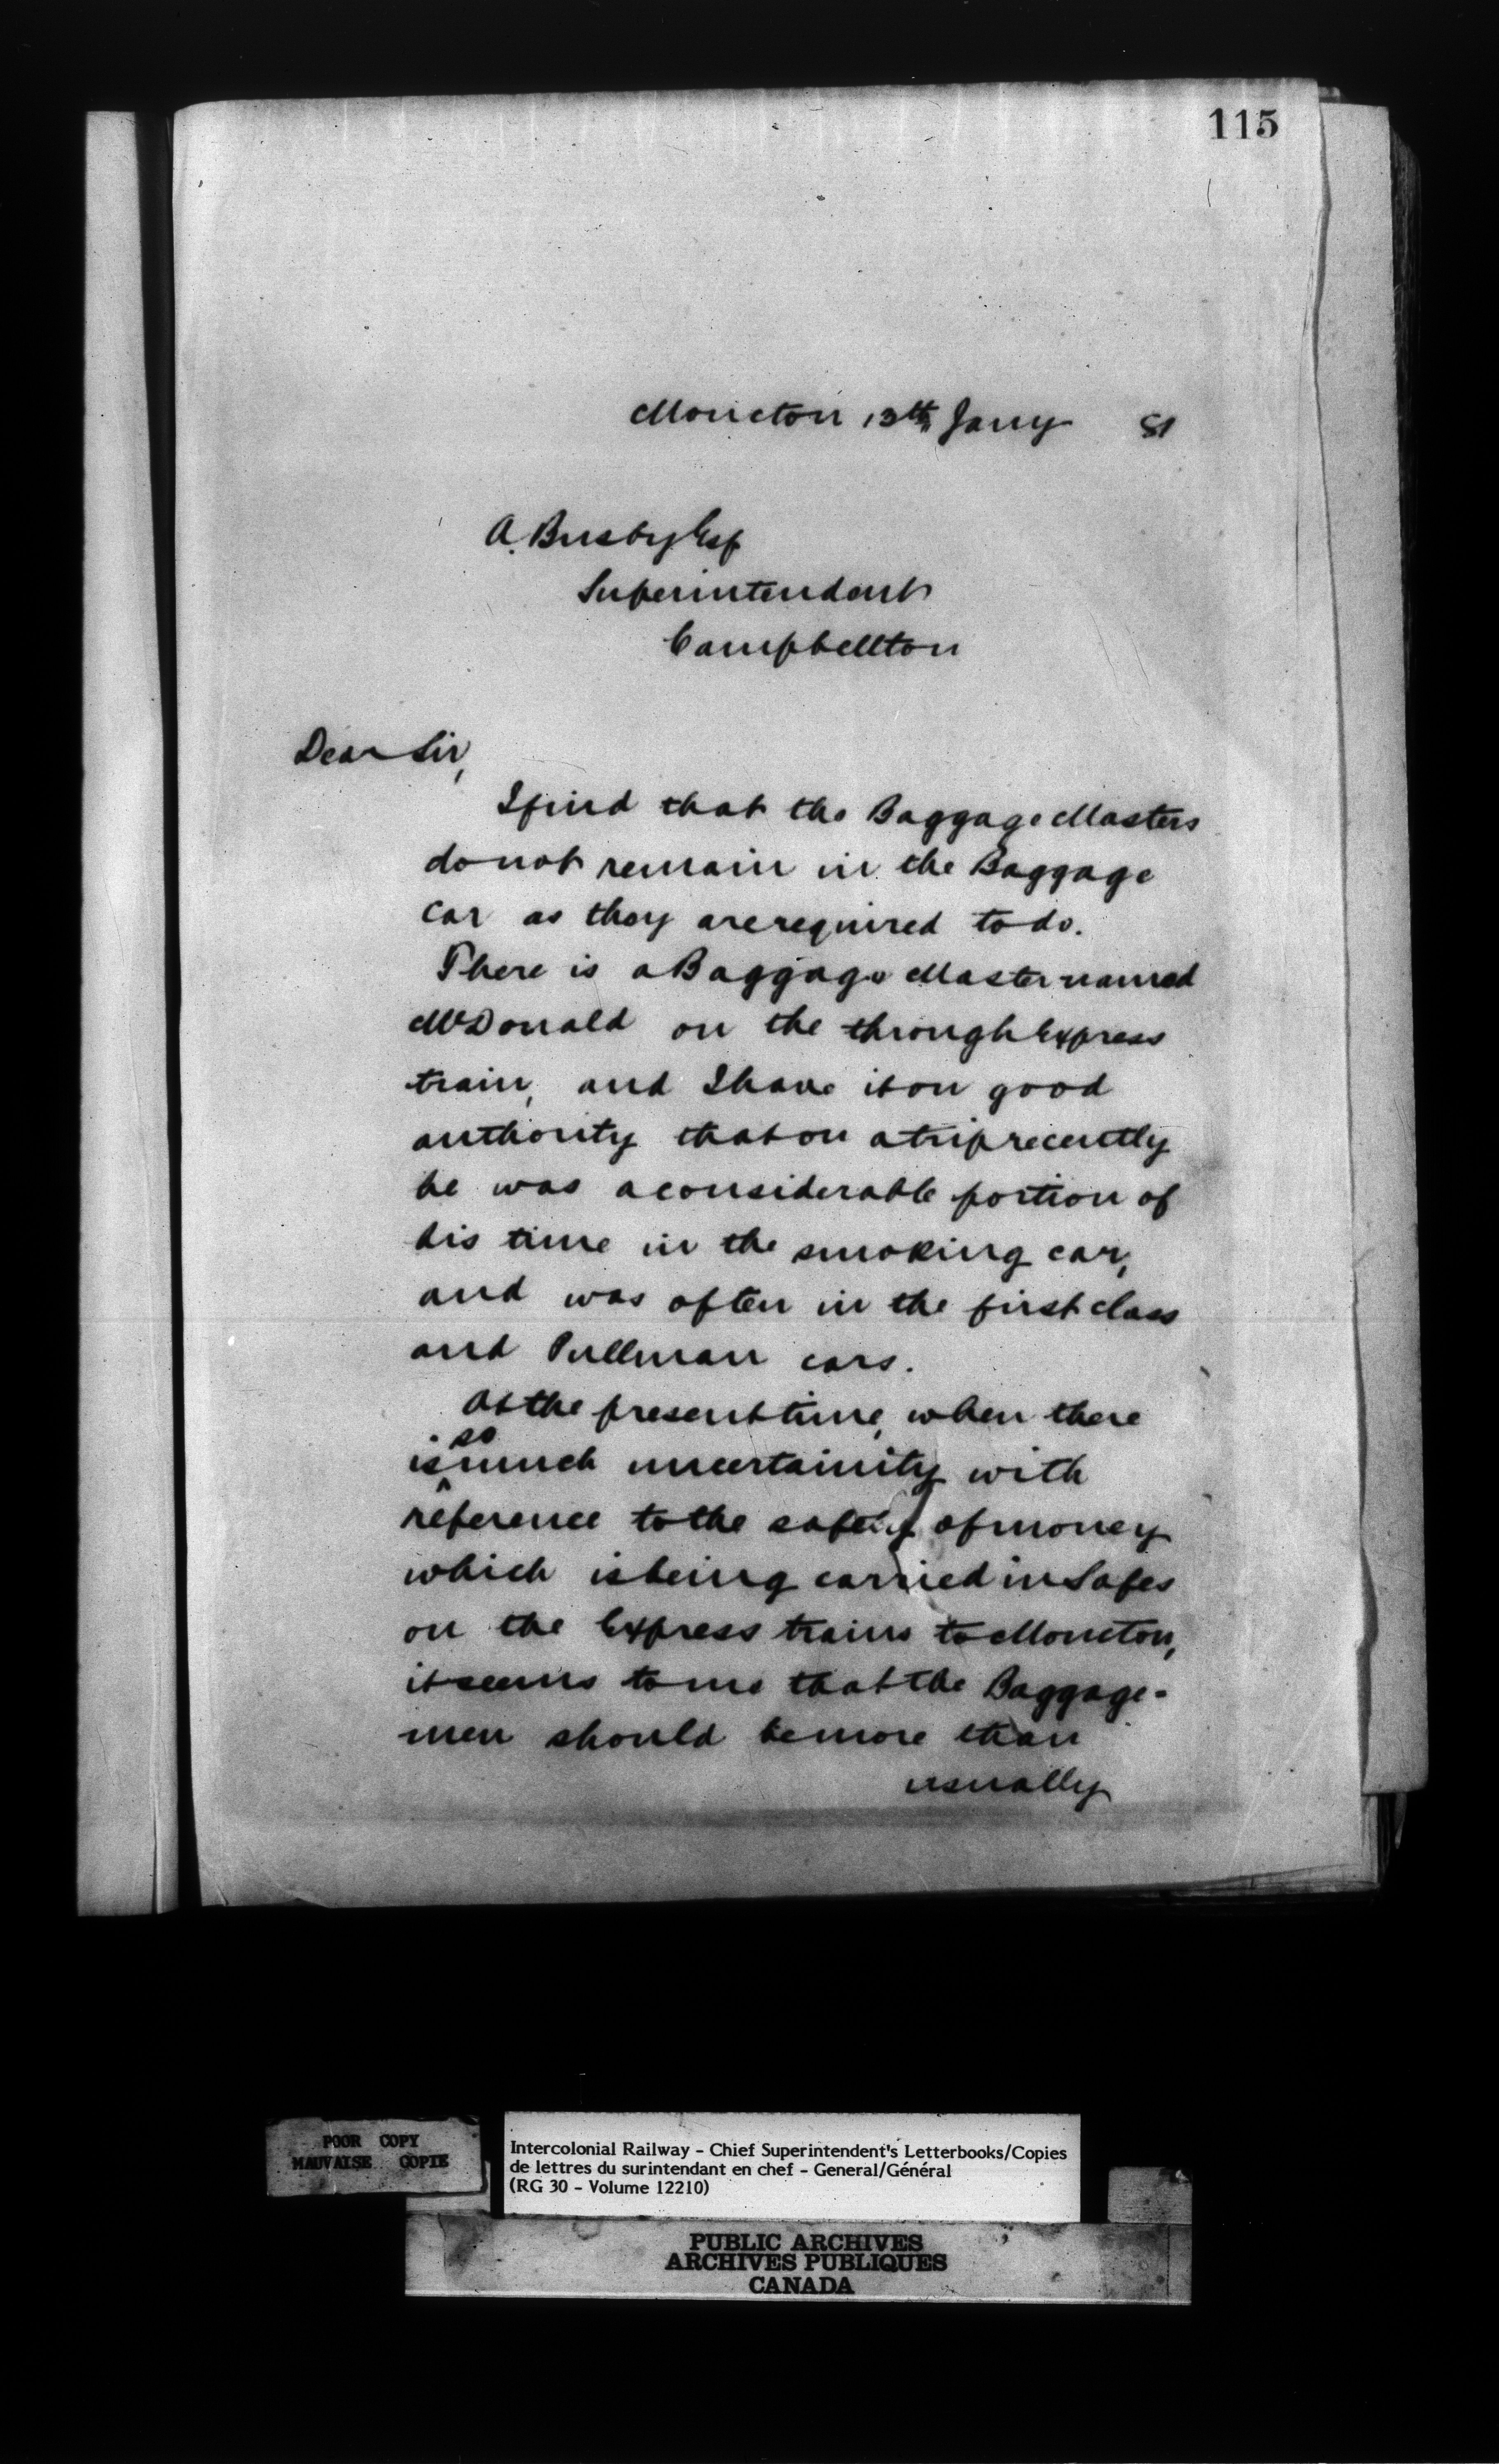 115
Moncton 13th Jany 81
A. Busby Esq
Superintendent
Campbellton
Dear Sir,
I find that the Baggage Masters
do not remain in the Baggage
car as they are required to do.
There is a Baggage Master named
McDonald on the through Express
train, and I have it on good
authority that on a trip recently
he was a considerable portion of
his time in the smoking car,
and was often in the first class
and Pullman cars.
At the present time, when there
is so much uncertainity with
reference to the safety of money
which is being carried in Safes
on the Express trains to Moncton,
it seems to me that the Baggage-
men should be more than
usually
POOR COPY
MAUVAISE COPIE
Intercolonial Railway - Chief Superintendent's Letterbooks/Copies
de lettres du surintendant en chef - General/Général
(RG 30 - Volume 12210)
PUBLIC ARCHIVES
ARCHIVES PUBLIQUES
CANADA